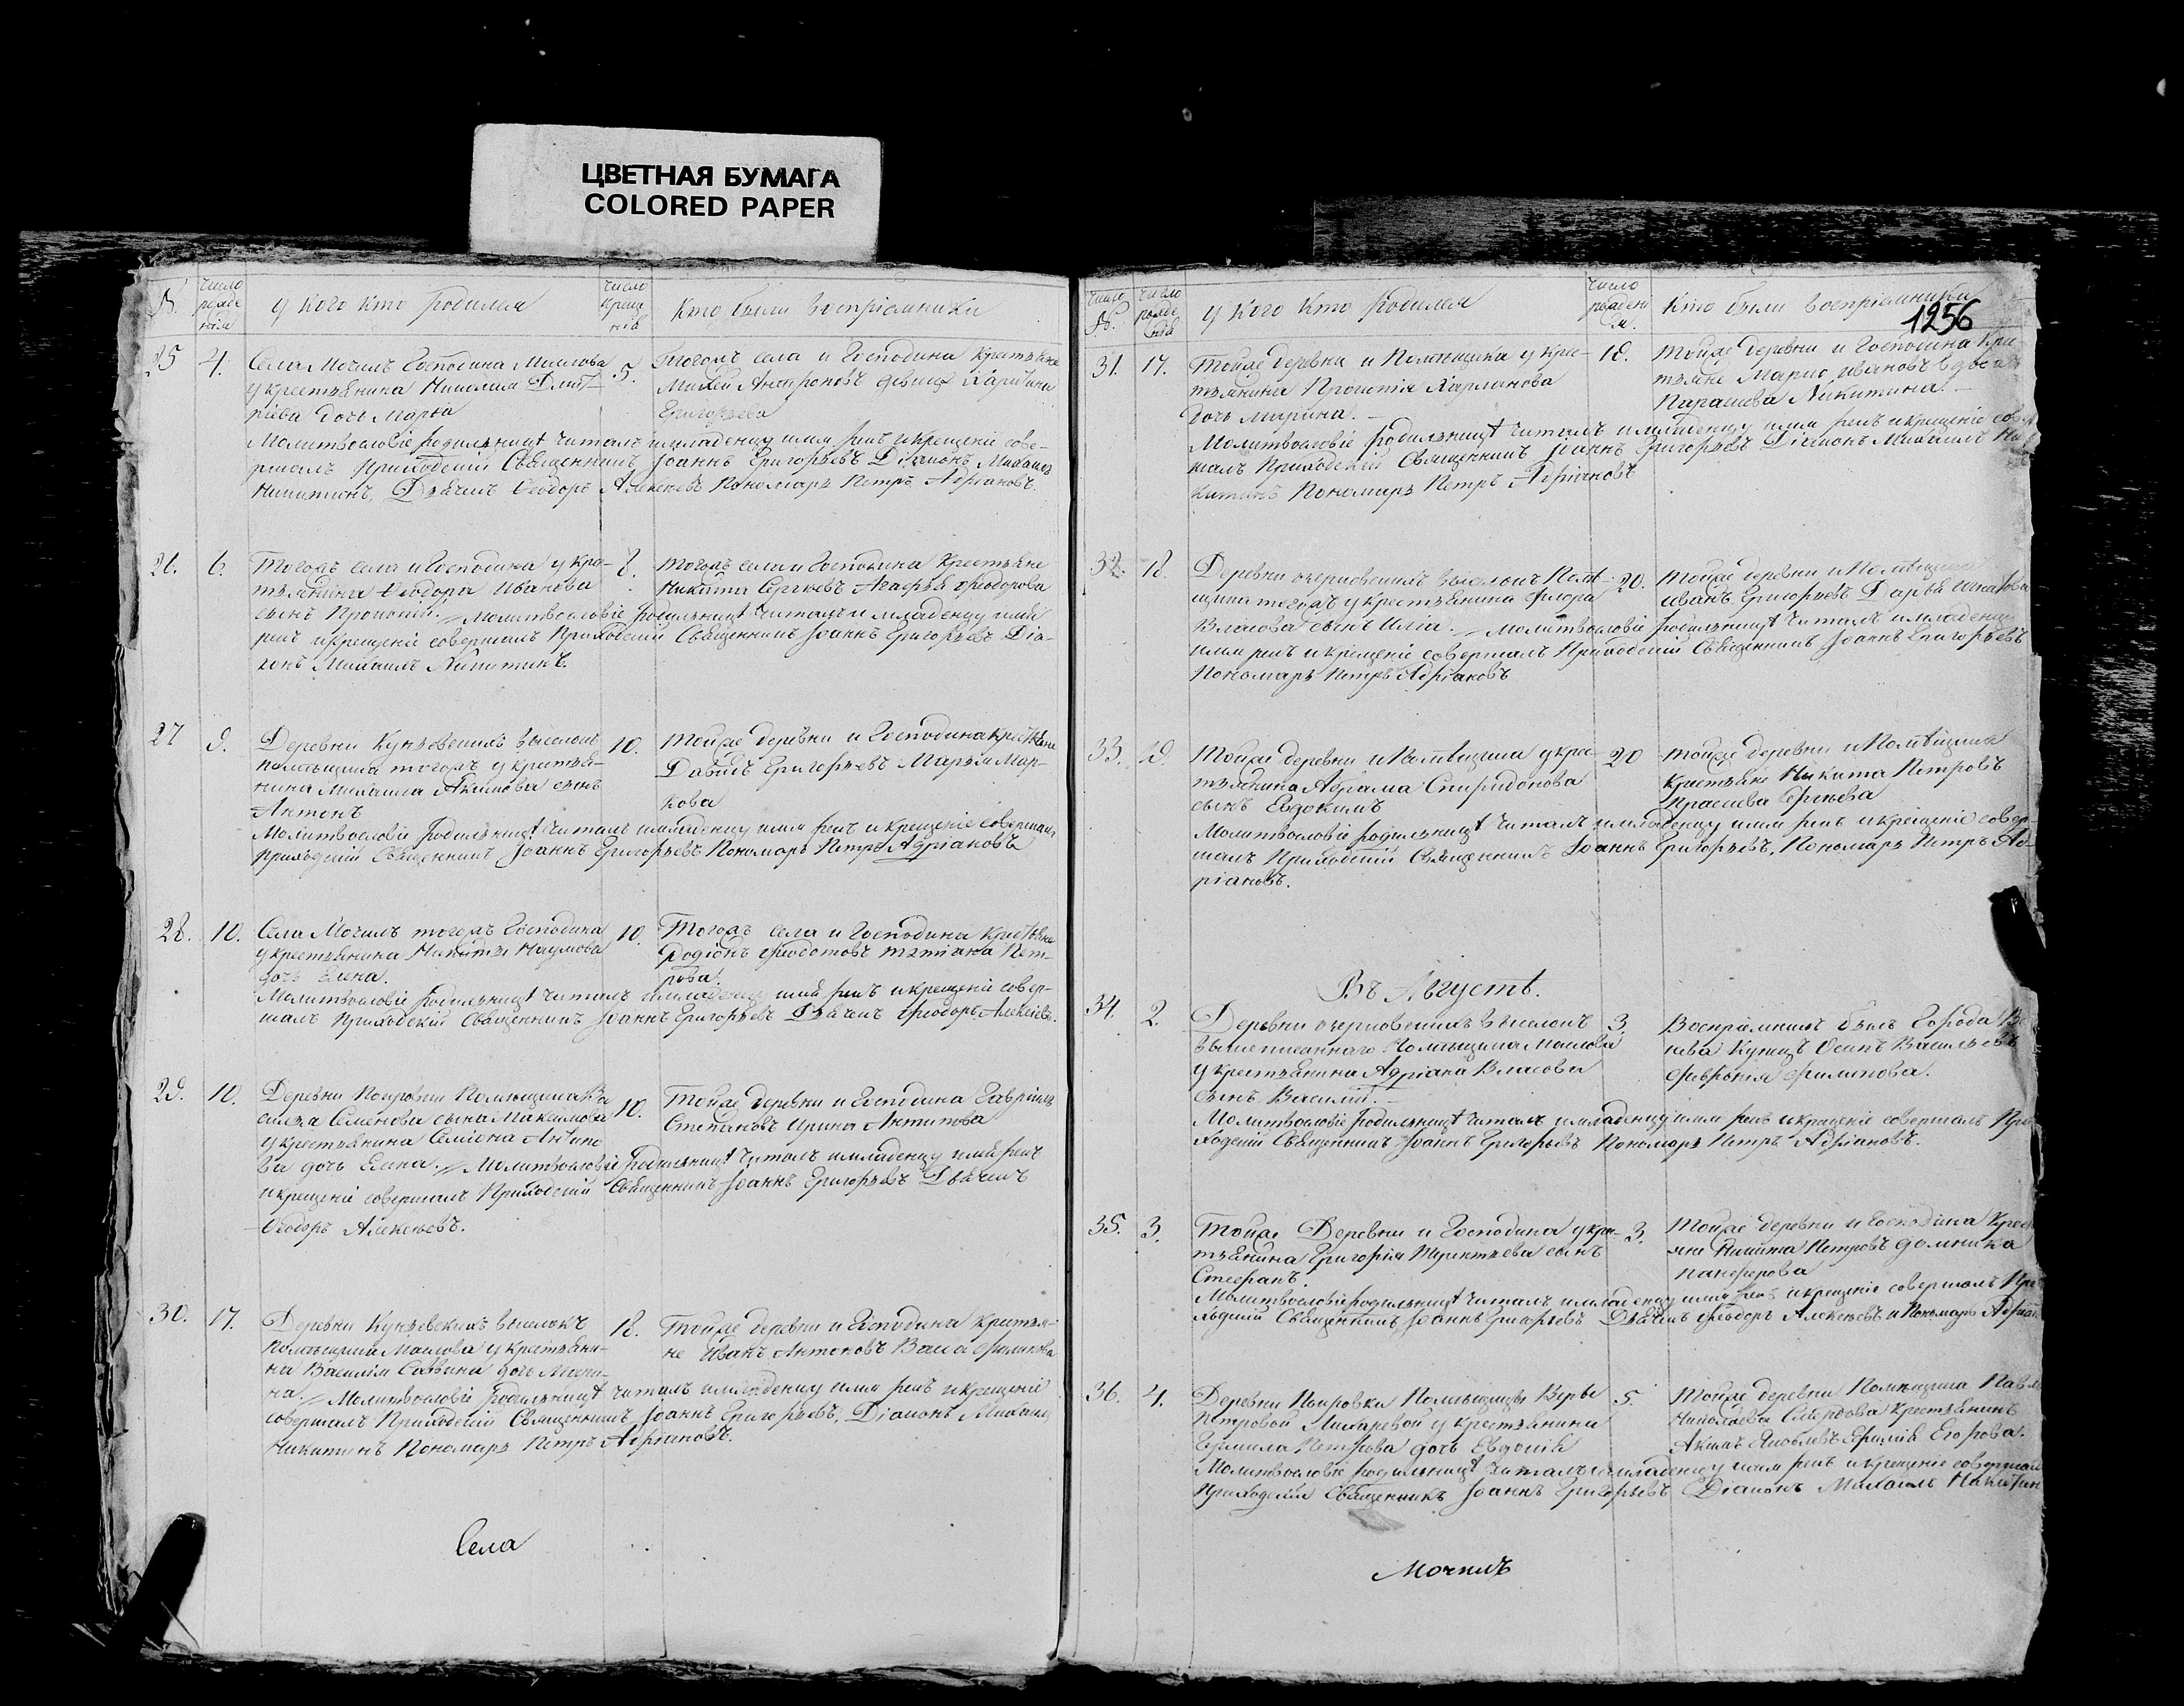 ЦВЕТНАЯ БУМАГА
COLORED PAPER
№. число рожде нія у кого кто родился число крещ нія кто были воспріемники
25 4. Села Мочилъ Господина Маслова 5. тогожъ села и Господина крестьяне
у крестьянина Николая Дмит- Михей Антроновъ девица
ріева дочь Марья Григорьева
Молитвословіе родильницѣ читалъ и младенцу имя рекъ и крещеніе сове-
ршалъ Приходскій Священникъ Іоаннъ Григорьевъ Діаконъ Михаилъ
Никитинъ, Дьячекъ Ѳеодоръ Алексѣевъ Пономарь Петръ Адріановъ.
26. 6. Тогожъ села и Господина у кре- 8. тогожъ села и Господина крестьяне
стьянина Ѳеодора Иванова Никита Сергѣевъ Агафья Ѳеодорова
сынъ Прокопій. Молитвословіе родильницѣ читалъ и младенцу имя
рекъ и крещеніе совершалъ Приходскій Священникъ Іоаннъ Григорьевъ Діа-
конъ Михаилъ Никитинъ.
27 9. Деревни Кунѣевскихъ выселокъ 10. Тойже деревни и Господина крестьяне
помѣщика тогожъ у крестья- Давидъ Григорьевъ Марья Мар-
нина Михаила Акимова сынъ кова
Антонъ
Молитвословіе родильницѣ читалъ и младенцу имя рекъ и крещеніе совершалъ
Приходскій Священникъ Іоаннъ Григорьевъ Пономарь Петръ Адріановъ
28. 10. Села Мочилъ тогожъ Господина 10. Тогожъ села и Господина крестьяне
у крестьянина Никиты Наумова Родіонъ Ѳеодотовъ татіана Пет-
дочь Елена. рова.
Молитвословіе родильницѣ читалъ и младенцу имя рекъ и крещеніе совер-
шалъ Приходскій Священникъ Іоаннъ Григорьевъ Дьячекъ Ѳеодоръ Алексѣевъ.
29. 10. Деревни Покровки Помѣщика Ва 10. Тойже деревни и Господина Гавріилъ
силья Семенова сына Максимова Степановъ Ирина Антипова
у крестьянина Семіона Антипо
ва дочь Елена. Молитвословіе родильницѣ читалъ и младенцу имя рекъ
и крещеніе совершалъ Приходскій Священникъ Іоаннъ Григорьевъ Дьячекъ
Ѳеодоръ Алексѣевъ.
30. 17. Деревни Кунѣевскихъ выселокъ 18. Тойже деревни и Господина крестья-
Помѣщика Маслова у крестьяни- не Иванъ Антоновъ Васса Филипова
на Василія Саввина дочь Мари-
на. Молитвословіе родильницѣ читалъ и младенцу имя рекъ и крещеніе
совершалъ Приходскій Священникъ Іоаннъ Григорьевъ, Діаконъ Михаилъ
Никитинъ Пономарь Петръ Адріановъ.
Села
число №. число рожде нія у кого кто родился число рожденія. кто были воспріемники
1256
31. 17. Тойже деревни и Помѣщика у крес- 18. тойже деревни и Господина кре-
тьянина Прокопія Харланова стьяне Ивановъ вдова
дочь Марина. Парасева Никитина.
Молитвословіе родильницѣ читалъ и младенцу имя рекъ и крещеніе совер
шалъ Приходскій Священникъ Іоаннъ Григорьевъ Діаконъ Михаилъ Ни
китинъ Пономарь Петръ Адріановъ
32. 18. Деревни выселокъ Помѣ- 20. тойже деревни и Помѣщика
щика тогожъ у крестьянина Флора Иванъ Григорьевъ Дарья Игнатова
Власова сынъ Илія. Молитвословіе родильницѣ читалъ и младенцу
имя рекъ и крещеніе совершалъ Приходскій Священникъ Іоаннъ Григорьевъ
Пономарь Петръ Адріановъ
33. 19. Тойже деревни и Помѣщика у крес- 20 тойже деревни и Помѣщика
тьянина Абрама Спиридонова крестьяне Никита Петровъ
сынъ Евдокимъ
Молитвословіе родильницѣ читалъ и младенцу имя рекъ и крещеніе совер-
шалъ Приходскій Священникъ Іоаннъ Григорьевъ, Пономарь Петръ Ад-
ріановъ.
Въ Августѣ.
34. 2. Деревни выселокъ 3. Воспріемникъ былъ Города Ве
вышеписаннаго Помѣщика Маслова нева Купецъ Осипъ Васильевъ
у крестьянина Адріана Власова Февронія Филипова.
сынъ Василій.
Молитвословіе родильницѣ читалъ и младенцу имя рекъ и крещеніе совершалъ При
ходскій Священникъ Іоаннъ Григорьевъ Пономарь Петръ Адріановъ.
35. 3. Тойже Деревни и Господина у кре- 3. тойже деревни и Господина крест
стьянина Григорія Терентьева сынъ яне Никита Петровъ домника
Стефанъ. панферова
Молитвословіе родильницѣ читалъ и младенцу имя рекъ и крещеніе совершалъ При
ходскій Священникъ Іоаннъ Григорьевъ Дьячекъ Ѳеодоръ Алексѣевъ и Пономарь Адріан.
36. 4. Деревни Покровки Помѣщицы Вѣры 5. тойже деревни Помѣщика Павла
Петровой у крестьянина Николаева крестьянинъ
Ермила Петрова дочь Евдокія Акимъ Яковлевъ Егорова.
Молитвословіе родильницѣ читалъ и младенцу имя рекъ и крещеніе совершалъ
Приходскій Священникъ Іоаннъ Григорьевъ Діаконъ Михаилъ Никитин
Мочилъ